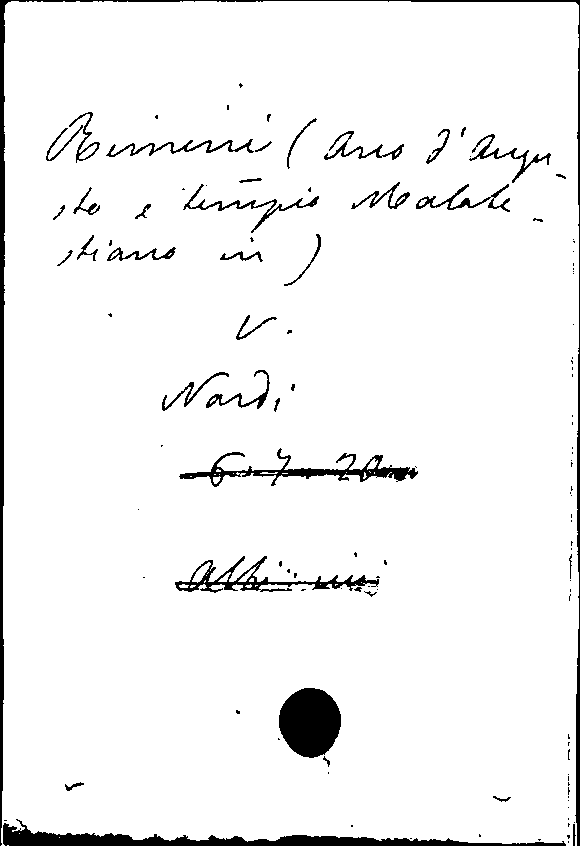 Rimini (Arco d'Augu-
sto e tempio Malate-
stiano in)
V.
Nardi
6. 7. 20